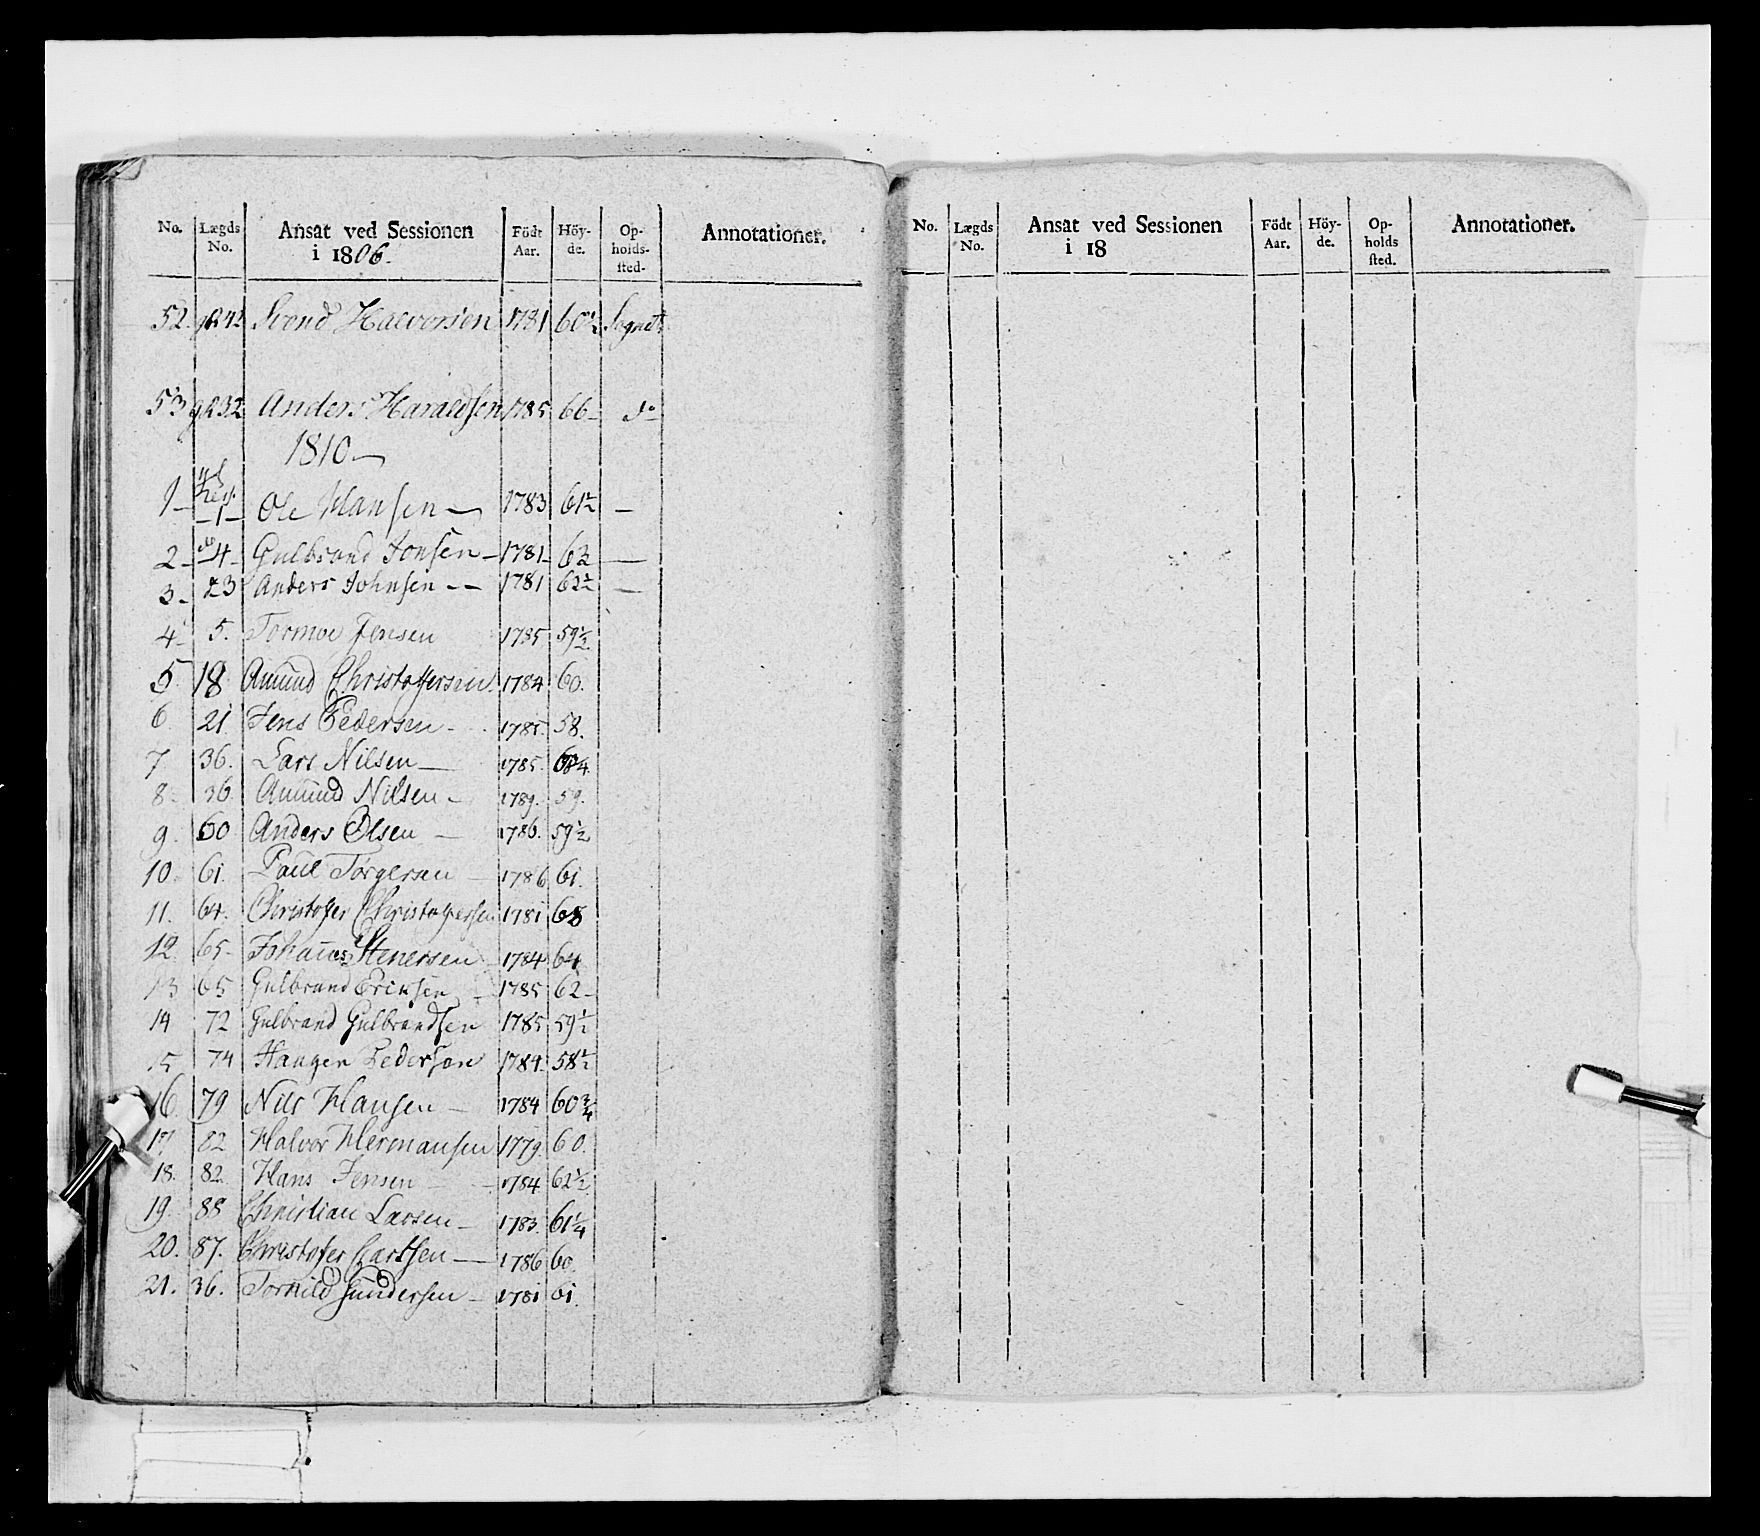 No. Lægds No. Ansat ved Sessionen i 1806. Födt Aar. Höy-de. Op-holds-sted. Annotationer.
52 Svend Halvorsen 1781 60½ Sognet
53 Anders Haraldsen 1785 66 do
1810
1 1 Ole Hansen 1783 61½
2 4 Gulbrand Jonsen 1781
3 23 Anders Johnsen 1781 62½
4 5. Tormoe Jensen 1785 59½
5 18 Amund Christofersen 1784 60.
6. 21. Jens Pedersen 1785. 58.
7. 36. Lars Nilsen 1785.
8. 36 Amund Nilsen 1789. 59.
9. 60 Anders Olsen 1786. 59½
10. 61. Paul Torgersen 1786 61.
11. 64. Christofer Christophersen 1781 68
12. 65. Johannes Stenersen 1784 64
13 65 Gulbrand Eriksen 1785 62
14 72 Gulbrand Gulbrandsen 1785 59½
15 74 Haagen Pedersen 1784 58½
16. 79 Nils Hansen 1784 60¾
17 82 Halvor Hermansen 1779. 60.
18. 82. Hans Jensen 1784 62½
19. 88 Christian Larsen 1783. 61¼
20. 87. Christofer Carlsen 1786 60.
21. 36. Torkild Gundersen 1781 61.
No. Lægds No. Ansat ved Sessionen i 18 Födt Aar. Höy-de. Op-holds sted. Annotationer.